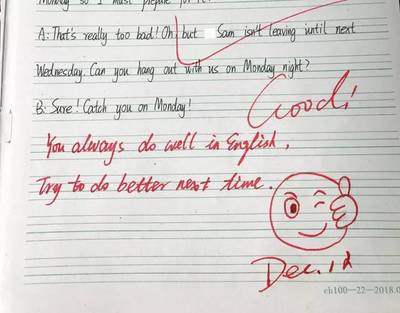 Monday so I must prepare for it.
A: That's really too bad! Oh, but Sam isn't leaving until next
Wednesday. Can you hang out with us on Monday night?
Good!
B: Sure! Catch you on Monday!
You always do well in English.
Try to do better next time.
Dec. 12
ch100—22—2018.0